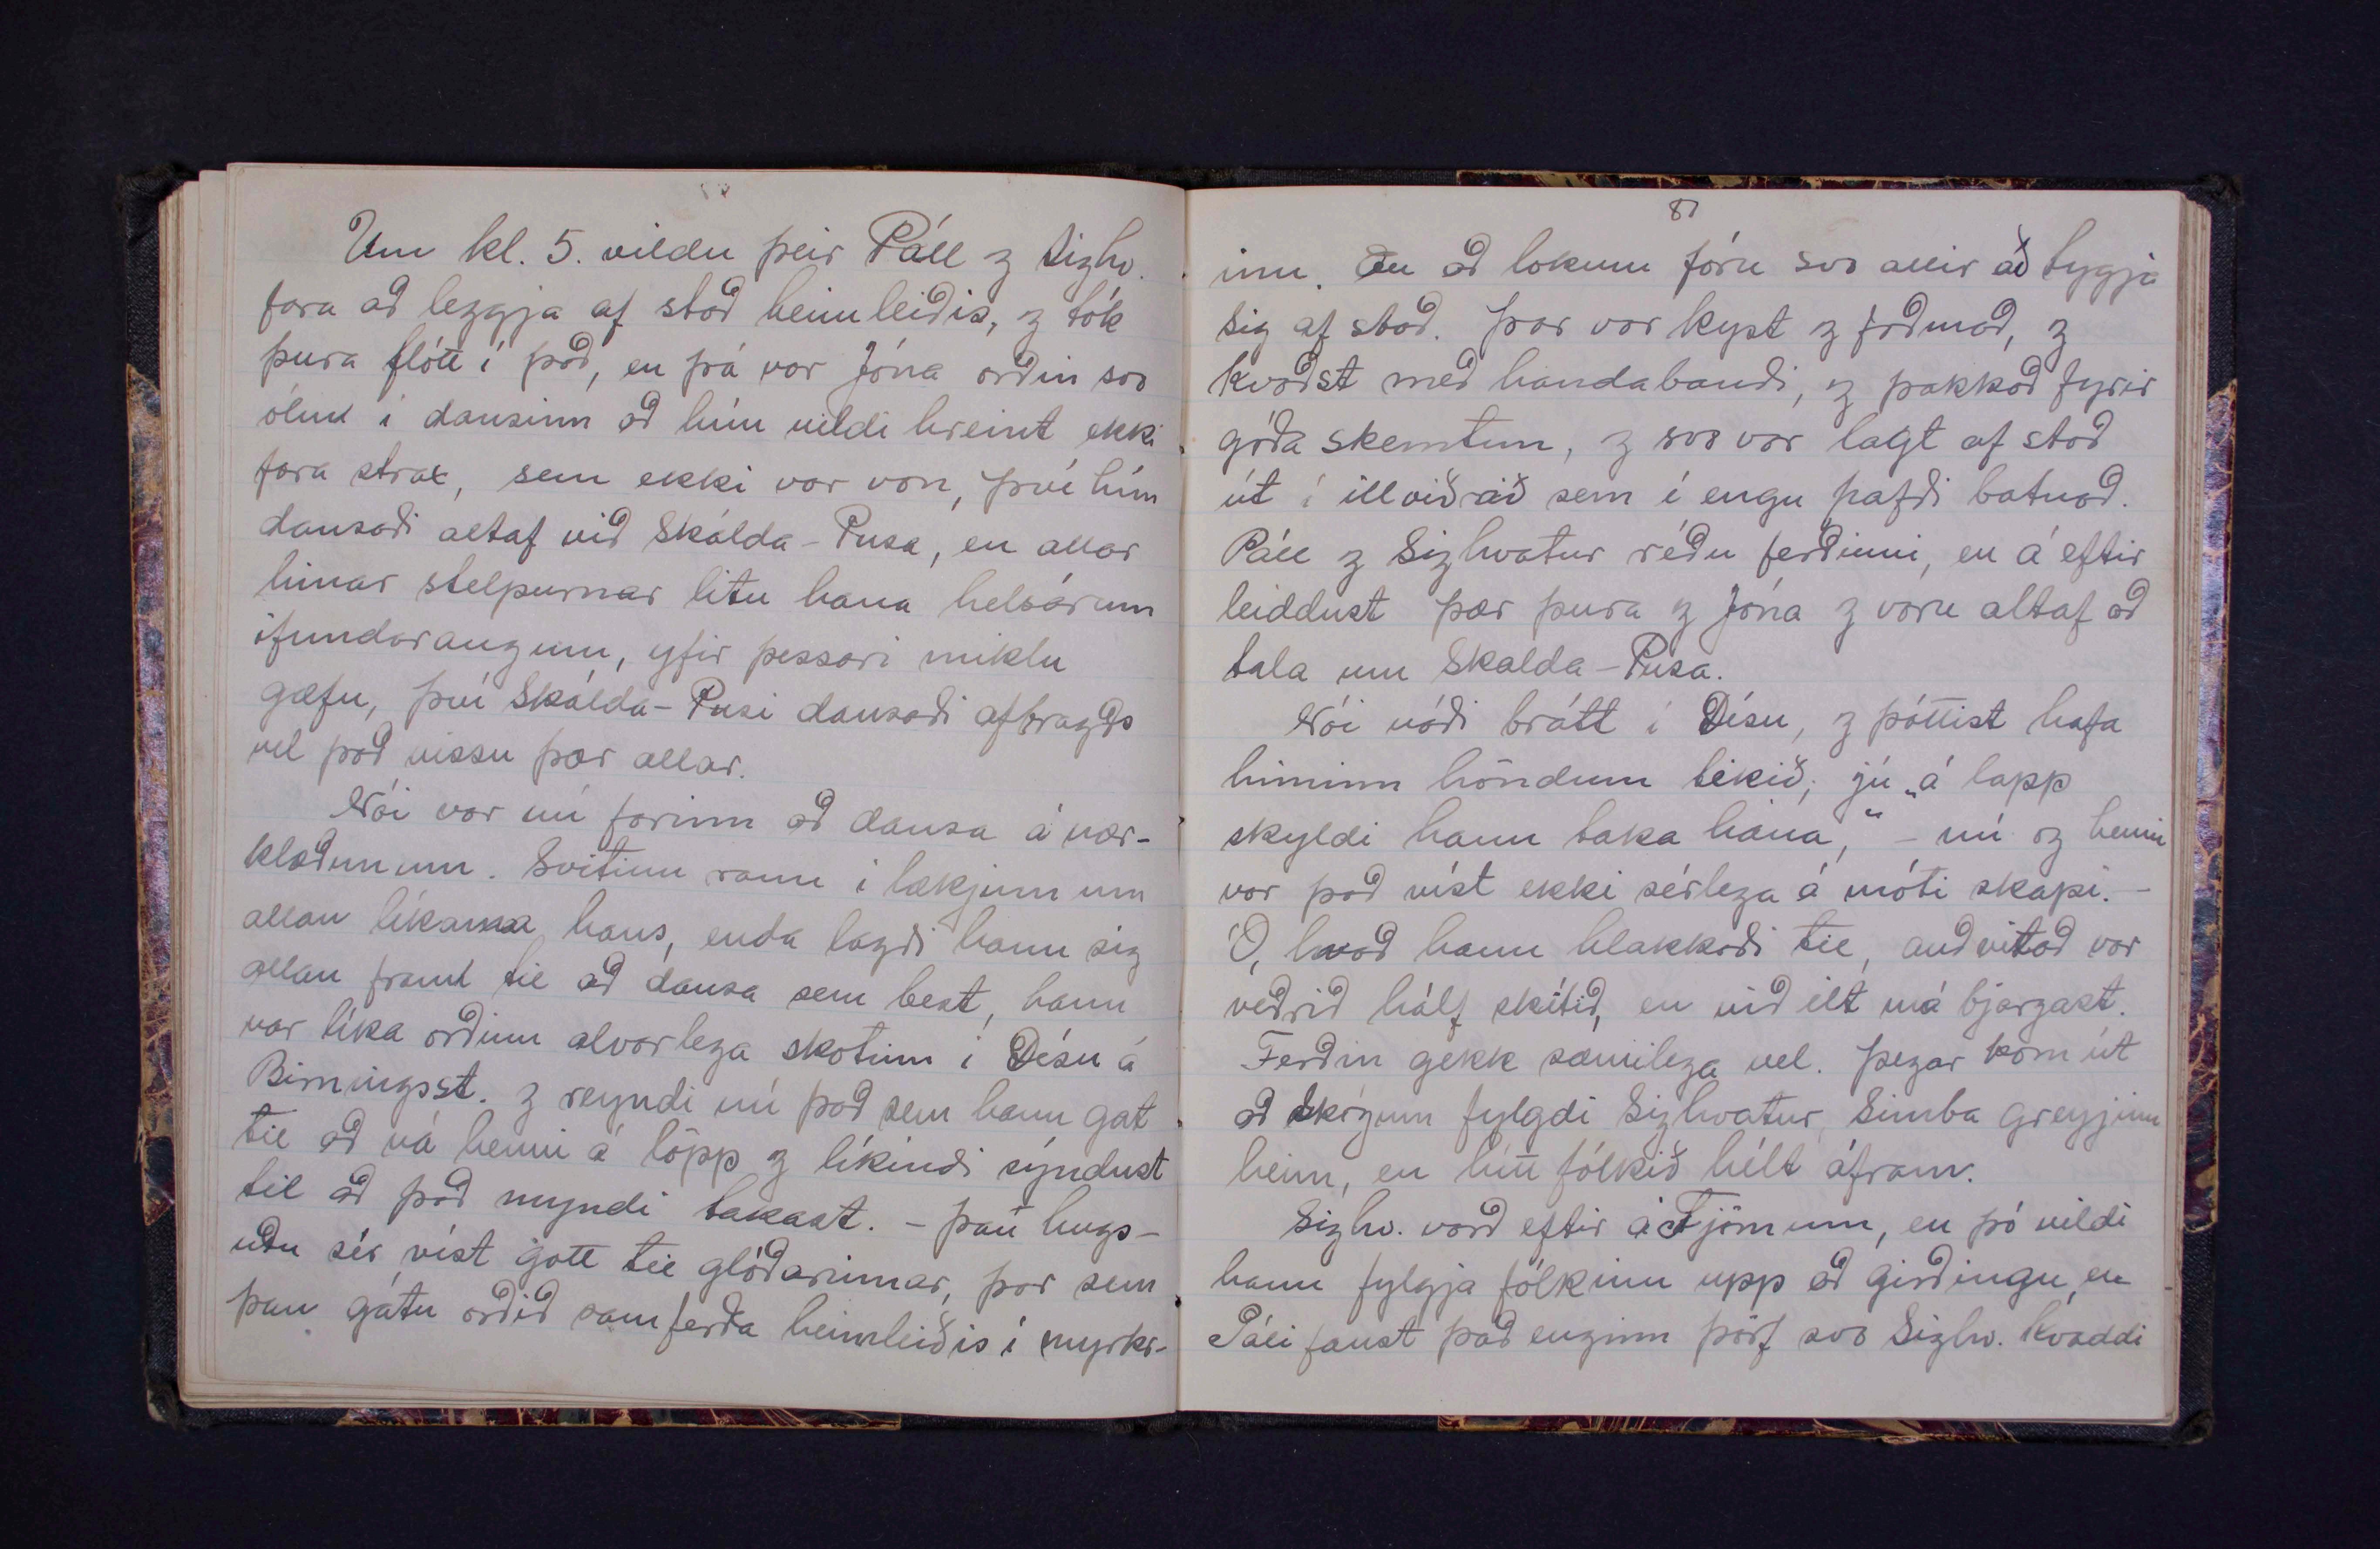 Um kl. 5. vildu þeir Páll & Sighv.
fara að leggja af stað heimleiðis, & tók
Þura flótt í það, en þá var Jóna orðin svo
ólm í dansinn að hún vildi hreint ekki
fara strax, sem ekki var von, því hún
dansaði altaf við Skálda-Pusa, en allar
hinar stelpurnar litu hana helsárum
öfundaraugum, yfir þessari miklu
gæfu, því Skálda-Pusi dansaði afbragðs
vel það vissu þær allar.
Nói var nú farinn að dansa á nær-
klæðunum. Svitinn rann í lækjum um
allan líkama hans, enda lagði hann sig
allan fram til að dansa sem best, hann
var líka orðinn alvarlega skotinn í Dísu á
Birningsst. & reyndi nú það sem hann gat
til að ná henni á löpp & líkindi sýndust
til að það myndi takast. - Þau hugs-
uðu sér víst gott til glóðarinnar, þar sem
þau gátu orðið samferða heimleiðis í myrkr-
81
inu. En að lokum fóru svo allir að tygja
sig af stað. Þar var kyst & faðmað, &
kvaðst með handabandi, & þakkað fyrir
góða skemtun, & svo var lagt af stað
út í illviðrið sem í engu hafði batnað.
Páll & Sighvatur réðu ferðinni, en á eftir
leiddust þær Þura & Jóna & voru altaf að
tala um Skálda-Pusa.
Nói náði brátt í Dísu, & þóttist hafa
himinn höndum tekið; jú „á lapp
skyldi hann taka hana," - nú og henni
var það víst ekki sérlega á móti skapi. -
Ó, hvað hann hlakkaði til, auðvitað var
veðrið hálf skítið, en við ilt má bjargast.
Ferðin gekk sæmilega vel. Þegar kom út
að Skógum fylgdi Sighvatur, Simba greyjinu
heim, en hitt fólkið hélt áfram.
Sighv. varð eftir á Tjörnum, en þó vildi
hann fylgja fólkinu upp að girðingu, en
Páli fanst það enginn þörf svo Sighv. kvaddi